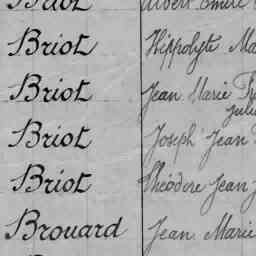 Briot Albert Emile
Briot Hippolyte Ma
Briot Jean Marie
Julie
Briot Joseph Jean
Briot Théodore Jean J
Brouard Jean Marie